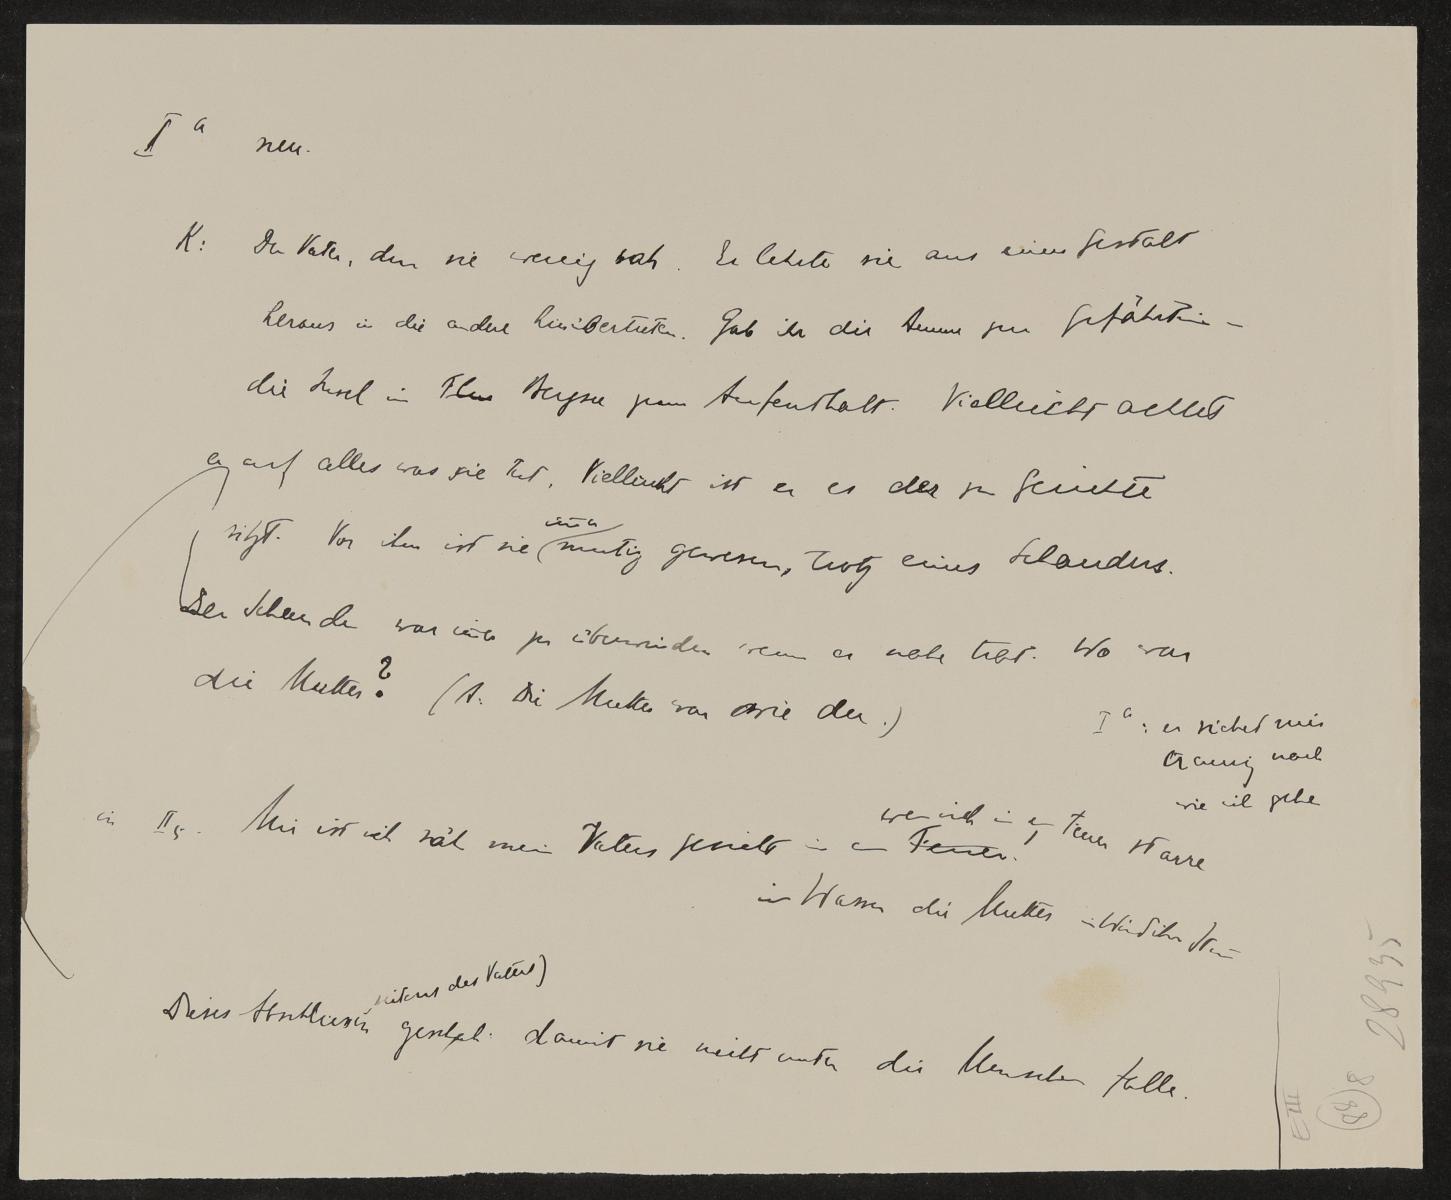 I a neu.
K: Der Vater, den sie wenig sah. Er lehrte sie aus einer Gestalt
heraus in die andere hinübertreten. Gab ihr die Amme zur Gefährtin –
die Insel im Bergsee zum Aufenthalt. Vielleicht achtet
er auf alles was sie tut, Vielleicht ist er es der zu Gerichte
sitzt. Vor ihm ist sie (immer mutig gewesen, trotz eines Schauders.
Der Schauder war immer zu überwinden wenn er nahe trat. Wo war
die Mutter? (A: Die Mutter war wie du.)
I a: er siehet mir
traurig nach
wie ich gehe
in II
Mir ist ich säh mein Vaters Gesicht
wenn ich in ein Feuer starre
Feuer.
im Wasser die Mutter
Dieses Abschliessen (seitens des Vaters)
geschah: damit sie nicht unter die Menschen falle.
28435
E III
8